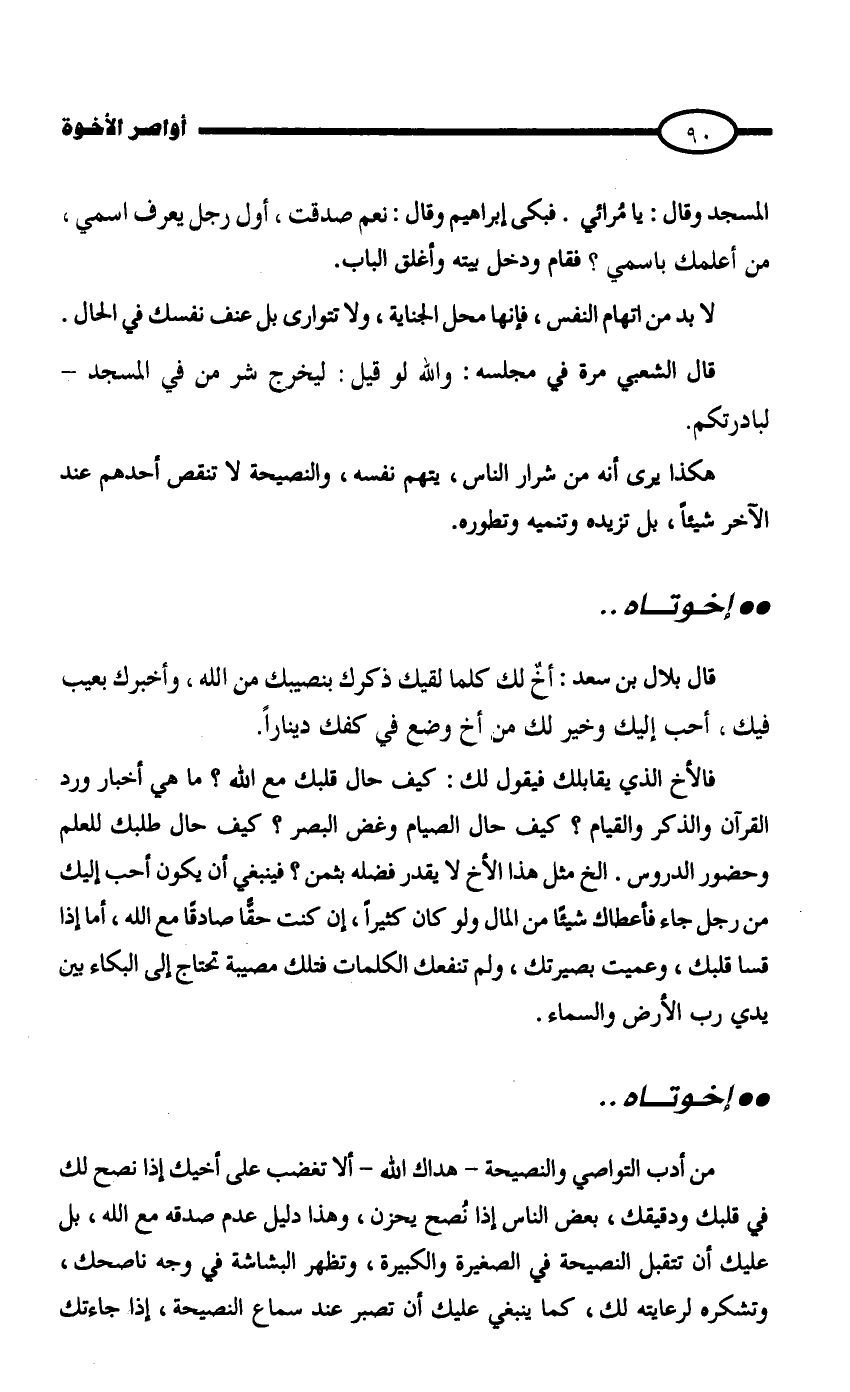 ٩٠ أواصر الأخوة
المسجد وقال : يا مُرائي . فبكى إبراهيم وقال : نعم صدقت ، أول رجل يعرف اسمي ،
من أعلمك باسمي ؟ فقام ودخل بيته وأغلق الباب.
لا بد من اتهام النفس ، فإنها محل الجناية ، ولا تتوارى بل عنف نفسك في الحال .
قال الشعبي مرة في مجلسه : والله لو قيل : ليخرج شر من في المسجد –
لبادرتكم.
هكذا يرى أنه من شرار الناس ، يتهم نفسه ، والنصيحة لا تنقص أحدهم عند
الآخر شيئاً ، بل تزيده وتنميه وتطوره.
●● إخـوتـــاه ..
قال بلال بن سعد : أخٌ لك كلما لقيك ذكرك بنصيبك من الله ، وأخبرك بعيب
فيك ، أحب إليك وخير لك من أخ وضع في كفك ديناراً.
فالأخ الذي يقابلك فيقول لك : كيف حال قلبك مع الله ؟ ما هي أخبار ورد
القرآن والذكر والقيام ؟ كيف حال الصيام وغض البصر ؟ كيف حال طلبك للعلم
وحضور الدروس . الخ مثل هذا الأخ لا يقدر فضله بثمن ؟ فينبغي أن يكون أحب إليك
من رجل جاء فأعطاك شيئًا من المال ولو كان كثيراً ، إن كنت حقًّا صادقًا مع الله ، أما إذا
قسا قلبك ، وعميت بصيرتك ، ولم تنفعك الكلمات فتلك مصيبة تحتاج إلى البكاء بين
يدي رب الأرض والسماء .
●● إخـوتـــاه ..
من أدب التواصي والنصيحة – هداك الله – ألا تغضب على أخيك إذا نصح لك
في قلبك ودقيقك ، بعض الناس إذا نُصح يحزن ، وهذا دليل عدم صدقه مع الله ، بل
عليك أن تتقبل النصيحة في الصغيرة والكبيرة ، وتظهر البشاشة في وجه ناصحك ،
وتشكره لرعايته لك ، كما ينبغي عليك أن تصبر عند سماع النصيحة ، إذا جاءتك